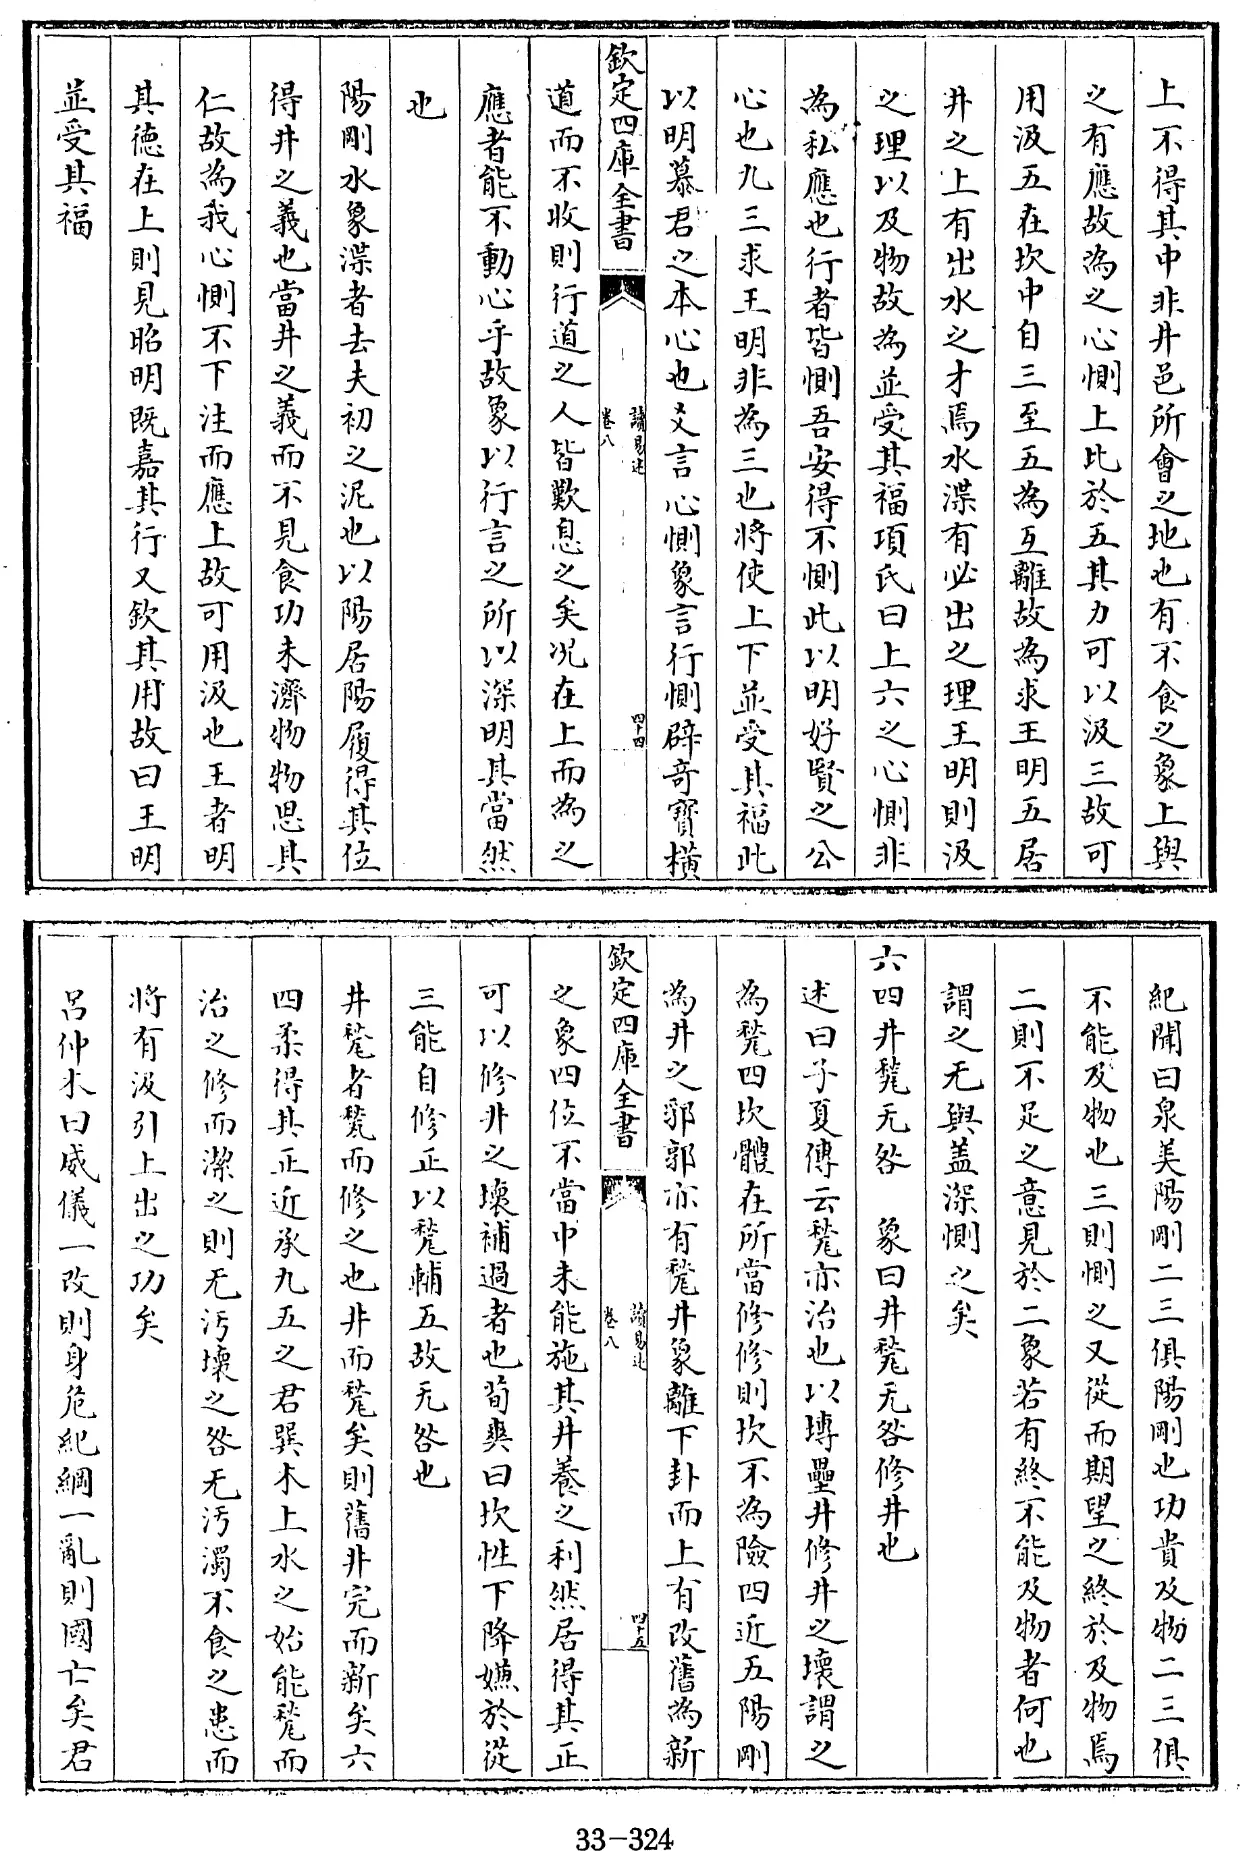 上不得其中非井邑所會之地也有不食之象上與
之有應故為之心惻上比於五其力可以汲三故可
用汲五在坎中自三至五為互離故為求王明五居
井之上有出水之才焉水渫有必出之理王明則汲
之理以及物故為並受其福項氏曰上六之心惻非
為私應也行者皆惻吾安得不惻此以明好賢之公
心也九三求王明非為三也將使上下並受其福此
以明慕君之本心也爻言心惻象言行惻辟奇寳橫
欽定四庫全書
讀易述
卷八
四十四
道而不收則行道之人皆歎息之矣况在上而為之
應者能不動心乎故象以行言之所以深明其當然
也
陽剛水象渫者去夫初之泥也以陽居陽履得其位
得井之義也當井之義而不見食功未濟物物思其
仁故為我心惻不下注而應上故可用汲也王者明
其德在上則見昭明既嘉其行又欽其用故曰王明
並受其福
紀聞曰泉美陽剛二三俱陽剛也功貴及物二三俱
不能及物也三則惻之又從而期望之終於及物焉
二則不足之意見於二象若有終不能及物者何也
謂之无與盖深惻之矣
六四井甃无咎 象曰井甃无咎修井也
述曰子夏傳云甃亦治也以塼壘井修井之壊謂之
為甃四坎體在所當修修則坎不為險四近五陽剛
為井之郛郭亦有甃井象離下卦而上有改舊為新
欽定四庫全書
讀易述
卷八
四十五
之象四位不當中未能施其井養之利然居得其正
可以修井之壊補過者也荀爽曰坎性下降嫌於從
三能自修正以甃輔五故无咎也
井甃者甃而修之也井而甃矣則舊井完而新矣六
四柔得其正近承九五之君巽木上水之始能甃而
治之修而潔之則无污壊之咎无污濁不食之患而
將有汲引上出之功矣
呂仲木曰威儀一改則身危紀綱一亂則國亡矣君
33-324